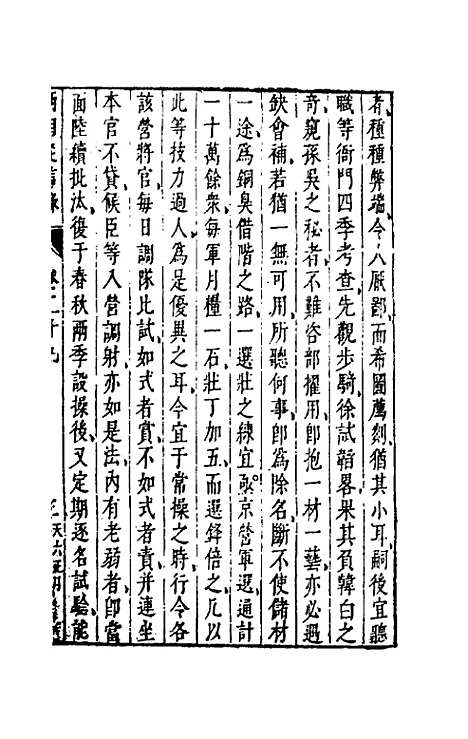 者種種弊端令人厭鄙而希圖薦剡猶其小耳嗣後宜聽
職等衙門四季考查先觀步騎徐試韜畧果其負韓白之
奇窺孫吳之秘者不難咨部擢用卽抱一材一藝亦必遇
缺會補若猶一無可用所聽何事卽為除名斷不使儲材
一途為銅臭借階之路一選壯之線宜聚京營軍選通計
一十萬餘衆每軍月糧一石壯丁加五而選鋒倍之凡以
此等技力過人為是優異之耳今宜于常操之時行令各
該營將官每日調隊比試如式者賞不如式者責并連坐
本官不貸候臣等入營調射亦如是法內有老弱者卽當
面陸續批汰復于春秋兩季設操後又定期逐名試驗能
兩朝從信錄
卷二十九